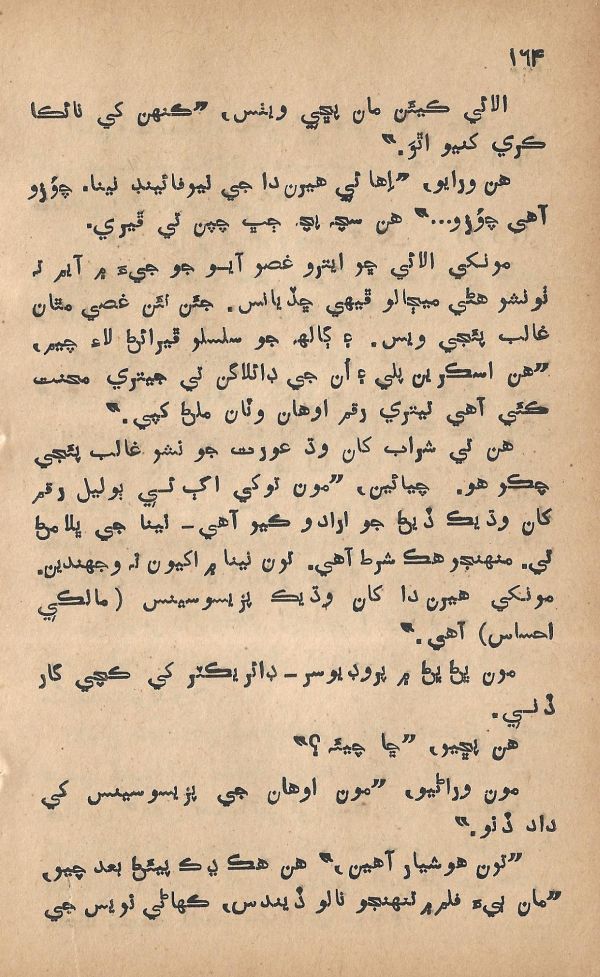 ١٦۴
الائي ڪيئن مان پڇي ويٺس، ”ڪنهن کي نائڪا
ڪري کنيو اٿوَ.“
هن ورايو، ”اِها ئي هيرن دا جي نيوفائينڊ نينا. چوُڙو
آهي چوُڙو...“ هن سچ پچ ڄڀ چپن تي ڦيري.
مونکي الائي ڇو ايترو غصو آيو جو جيءَ ۾ آيم ته
ٺونشو هڻي ميڄالو ڦيهي ڇڏيانس. جئن تئن غصي مٿان
غالب پئجي ويس. ۽ ڳالهه جو سلسلو ڦيرائڻ لاءِ چيم،
”هن اسڪرين پلي ۽ اُن جي ڊائلاگن تي جيتري محنت
ڪئي آهي تيتري رقم اوهان وٽان ملڻ کپي.“
هن تي شراب کان وڌ عورت جو نشو غالب پئجي
چڪو هو. چيائين، ”مون توکي اڳ ئي ٻوليل رقم
کان وڌيڪ ڏيڻ جو ارادو ڪيو آهي – نينا جي ڀلامڻ
تي. منهنجو هڪ شرط آهي. تون نينا ۾ اکيون نه وجهندين.
مونکي هيرن دا کان وڌيڪ پزيسوسينس (مالڪي
احساس) آهي.“
مون ڀڻ ڀڻ ۾ پروڊيوسر – ڊائريڪٽر کي ڪچي گار
ڏني.
هن پڇيو، ”ڇا چيئه؟“
مون وراڻيو، ”مون اوهان جي پزيسوسينس کي
داد ڏنو.“
”تون هوشيار آهين،“ هن هڪ ڍڪ پيئڻ بعد چيو،
”مان ٻيءَ فلم ۾ تنهنجو نالو ڏيندس، ڪهاڻي نويس جي